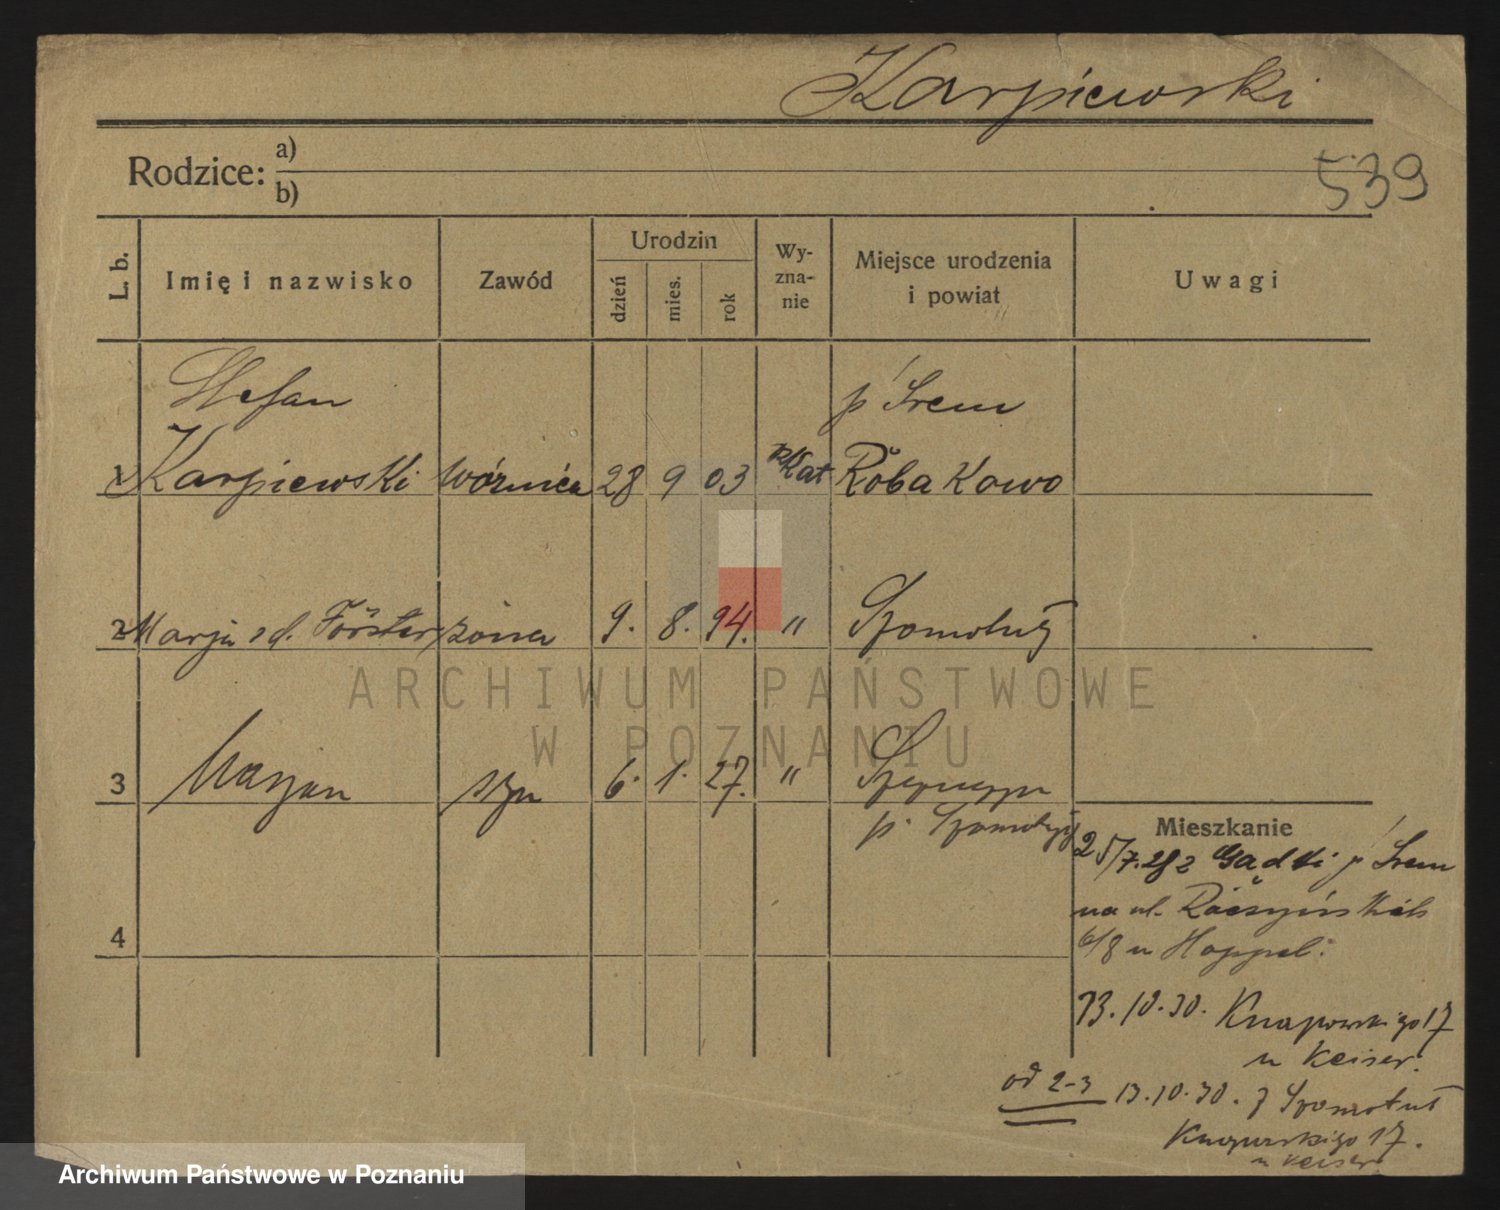 Karpiewski
539
Rodzice: a)
b)
L. b. Imię i nazwisko Zawód Urodzin dzień mies. rok Wy-zna-nie Miejsce urodzenia i powiat Uwagi
Stefan p Śrem
1 Karpiewski woźnica 28 9 03 rzKat Robakowo
2 Marja zd. Förster żona 9. 8. 94. " Szamotuły
3 Marjan syn 6. 1. 27. "
p. Szamotuły
Mieszkanie
25/7.28 z Gądki p Śrem
na ul.
4
6/8 u Hoppel.
13.10.30. Knapowskiego 17
u Keiser.
od 2-3 13.10.30. z Szamotuł
Knapowskiego 17.
u Keiser
ARCHIWUM PAŃSTWOWE
W POZNANIU
Archiwum Państwowe w Poznaniu